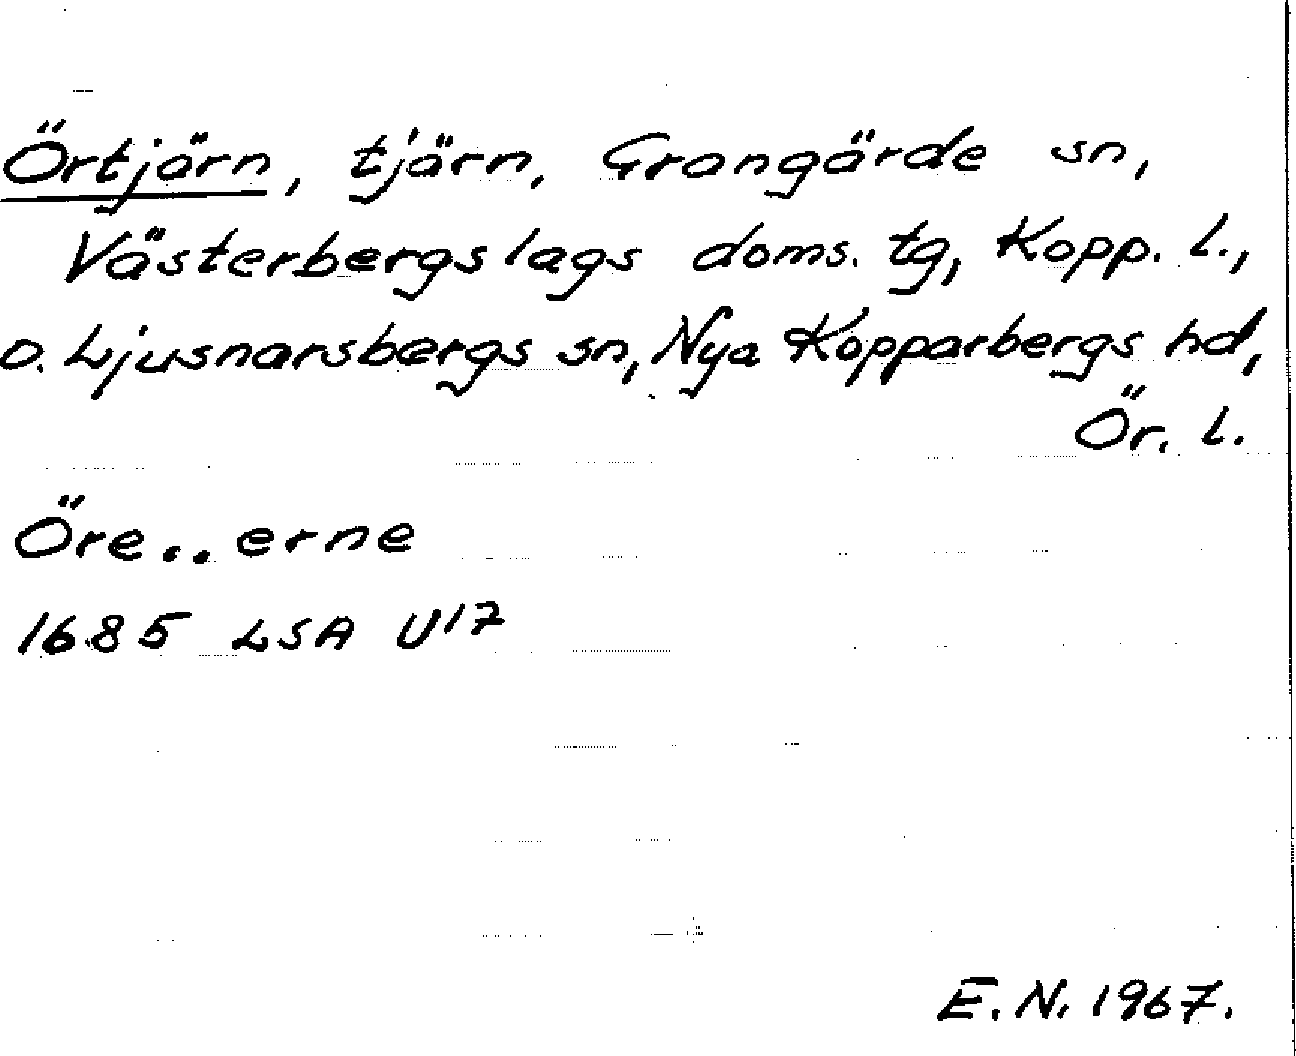 Örtjärn, tjärn, Grangärde sn,
Västerbergslags doms. tg, Kopp. l.,
o. Ljusnarsbergs sn, Nya Kopparbergs hd,
Ör. l.
Öre..erne
1685 LSA U17
E.N. 1967.